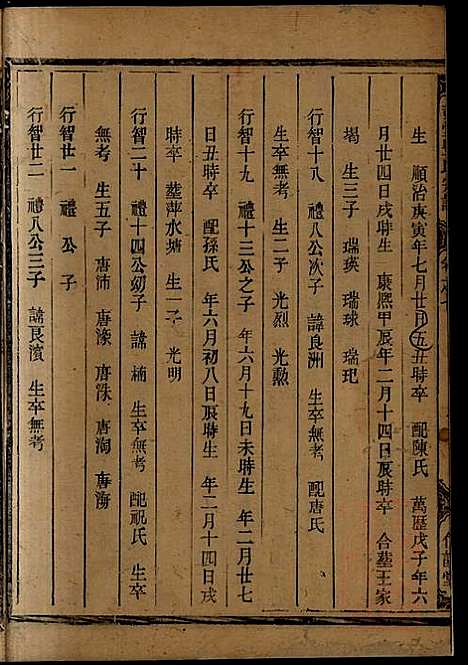 生 順治庚寅年七月廿五日丑時卒 配陳氏 萬歷戊子年六
月廿四日戌時生 康熙甲辰年二月十四日辰時卒 合塟王家
塌 生三子 瑞瑛 瑞球 瑞玘
行智十八 禮八公次子 諱良洲 生卒無考 配唐氏
生二子 光烈 光勲
行智十九 禮十三公之子 年六月十九日未時生 年二月廿七
日丑時卒 配孫氏 年六月初八日辰時生 年二月十四日戌
時卒 塟萍水塘 生一子 光明
行智二十 禮十四公幼子 諱楠 生卒無考 配祝氏 生卒
無考 生五子 唐沛 唐濠 唐洙 唐淘 唐海
行智廿一 禮 公子
行智廿二 禮八公三子 諱良濱 生卒無考